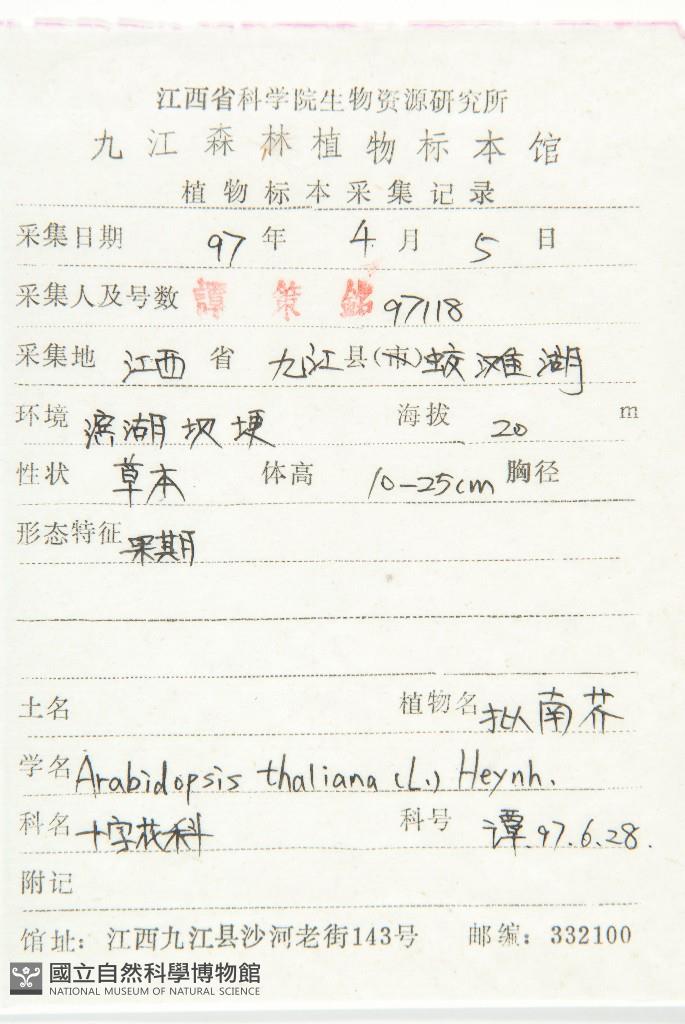 江西省科学院生物资源研究所
九江森林植物标本馆
植物标本采集记录
采集日期 97 年 4 月 5 日
采集人及号数 譚策銘 97118
采集地 江西 省 九江 县(市) 蛟滩湖
环境 滨湖坝埂 海拔 20 m
性状 草本 体高 10-25cm 胸径
形态特征 果期
土名 植物名 拟南芥
学名 Arabidopsis thaliana (L.) Heynh.
科名 十字花科 科号 谭.97.6.28.
附记
馆址：江西九江县沙河老街143号 邮编：332100
國立自然科學博物館
NATIONAL MUSEUM OF NATURAL SCIENCE